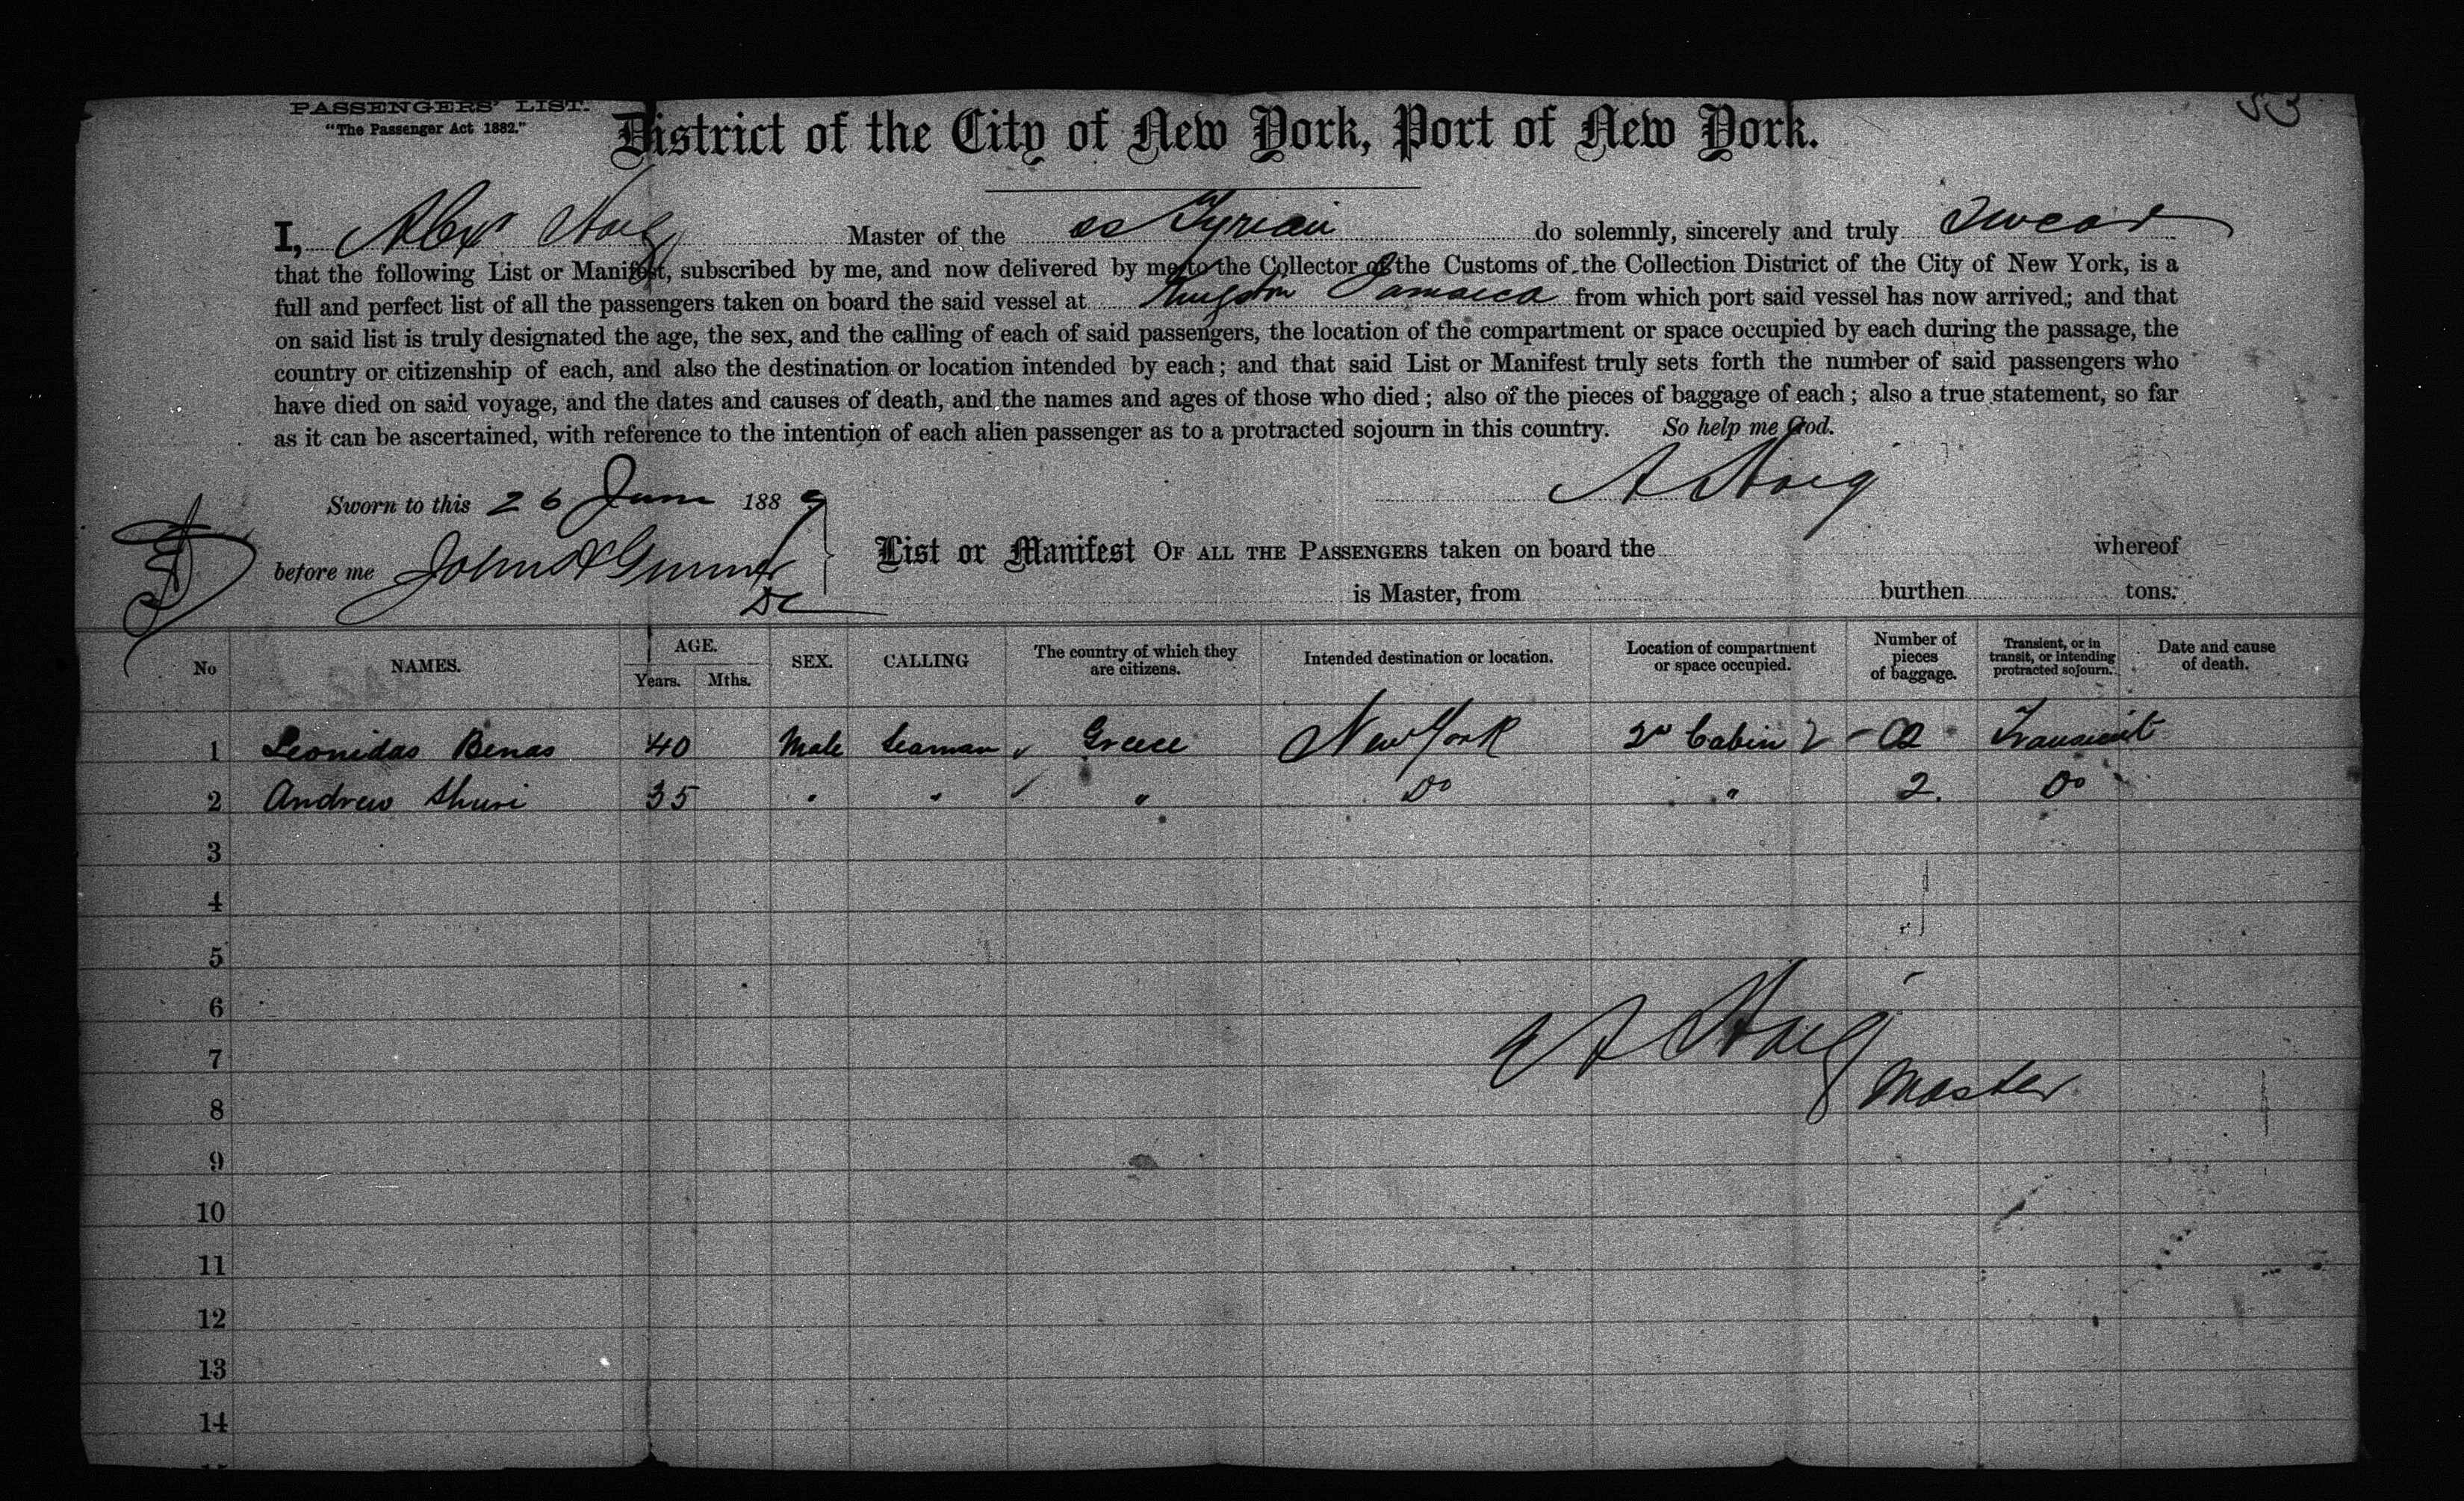 PASSENGERS' LIST.
"The Passenger Act 1882."
53
District of the City of New York, Port of New York.
I, Alexr Haig Master of the ss Tyrian do solemnly, sincerely and truly Swear
that the following List or Manifest, subscribed by me, and now delivered by me to the Collector of the Customs of the Collection District of the City of New York, is a
full and perfect list of all the passengers taken on board the said vessel at Kingston Jamaica from which port said vessel has now arrived; and that
on said list is truly designated the age, the sex, and the calling of each of said passengers, the location of the compartment or space occupied by each during the passage, the
country or citizenship of each, and also the destination or location intended by each; and that said List or Manifest truly sets forth the number of said passengers who
have died on said voyage, and the dates and causes of death, and the names and ages of those who died; also of the pieces of baggage of each; also a true statement, so far
as it can be ascertained, with reference to the intention of each alien passenger as to a protracted sojourn in this country. So help me God.
A Haig
Sworn to this 26 June 1889
before me John
DC
List or Manifest OF ALL THE PASSENGERS taken on board the whereof
is Master, from burthen tons.
No NAMES. AGE. Years. Mths. SEX. CALLING The country of which they are citizens. Intended destination or location. Location of compartment or space occupied. Number of pieces of baggage. Transient, or in transit, or intending protracted sojourn. Date and cause of death.
1 Leonidas Benas 40 Male Seaman Greece New York 2d Cabin 2 Transient
2 Andrew 35 " " " Do " 2. Do
3
4
5
6
7
8
A Haig Master
9
10
11
12
13
14